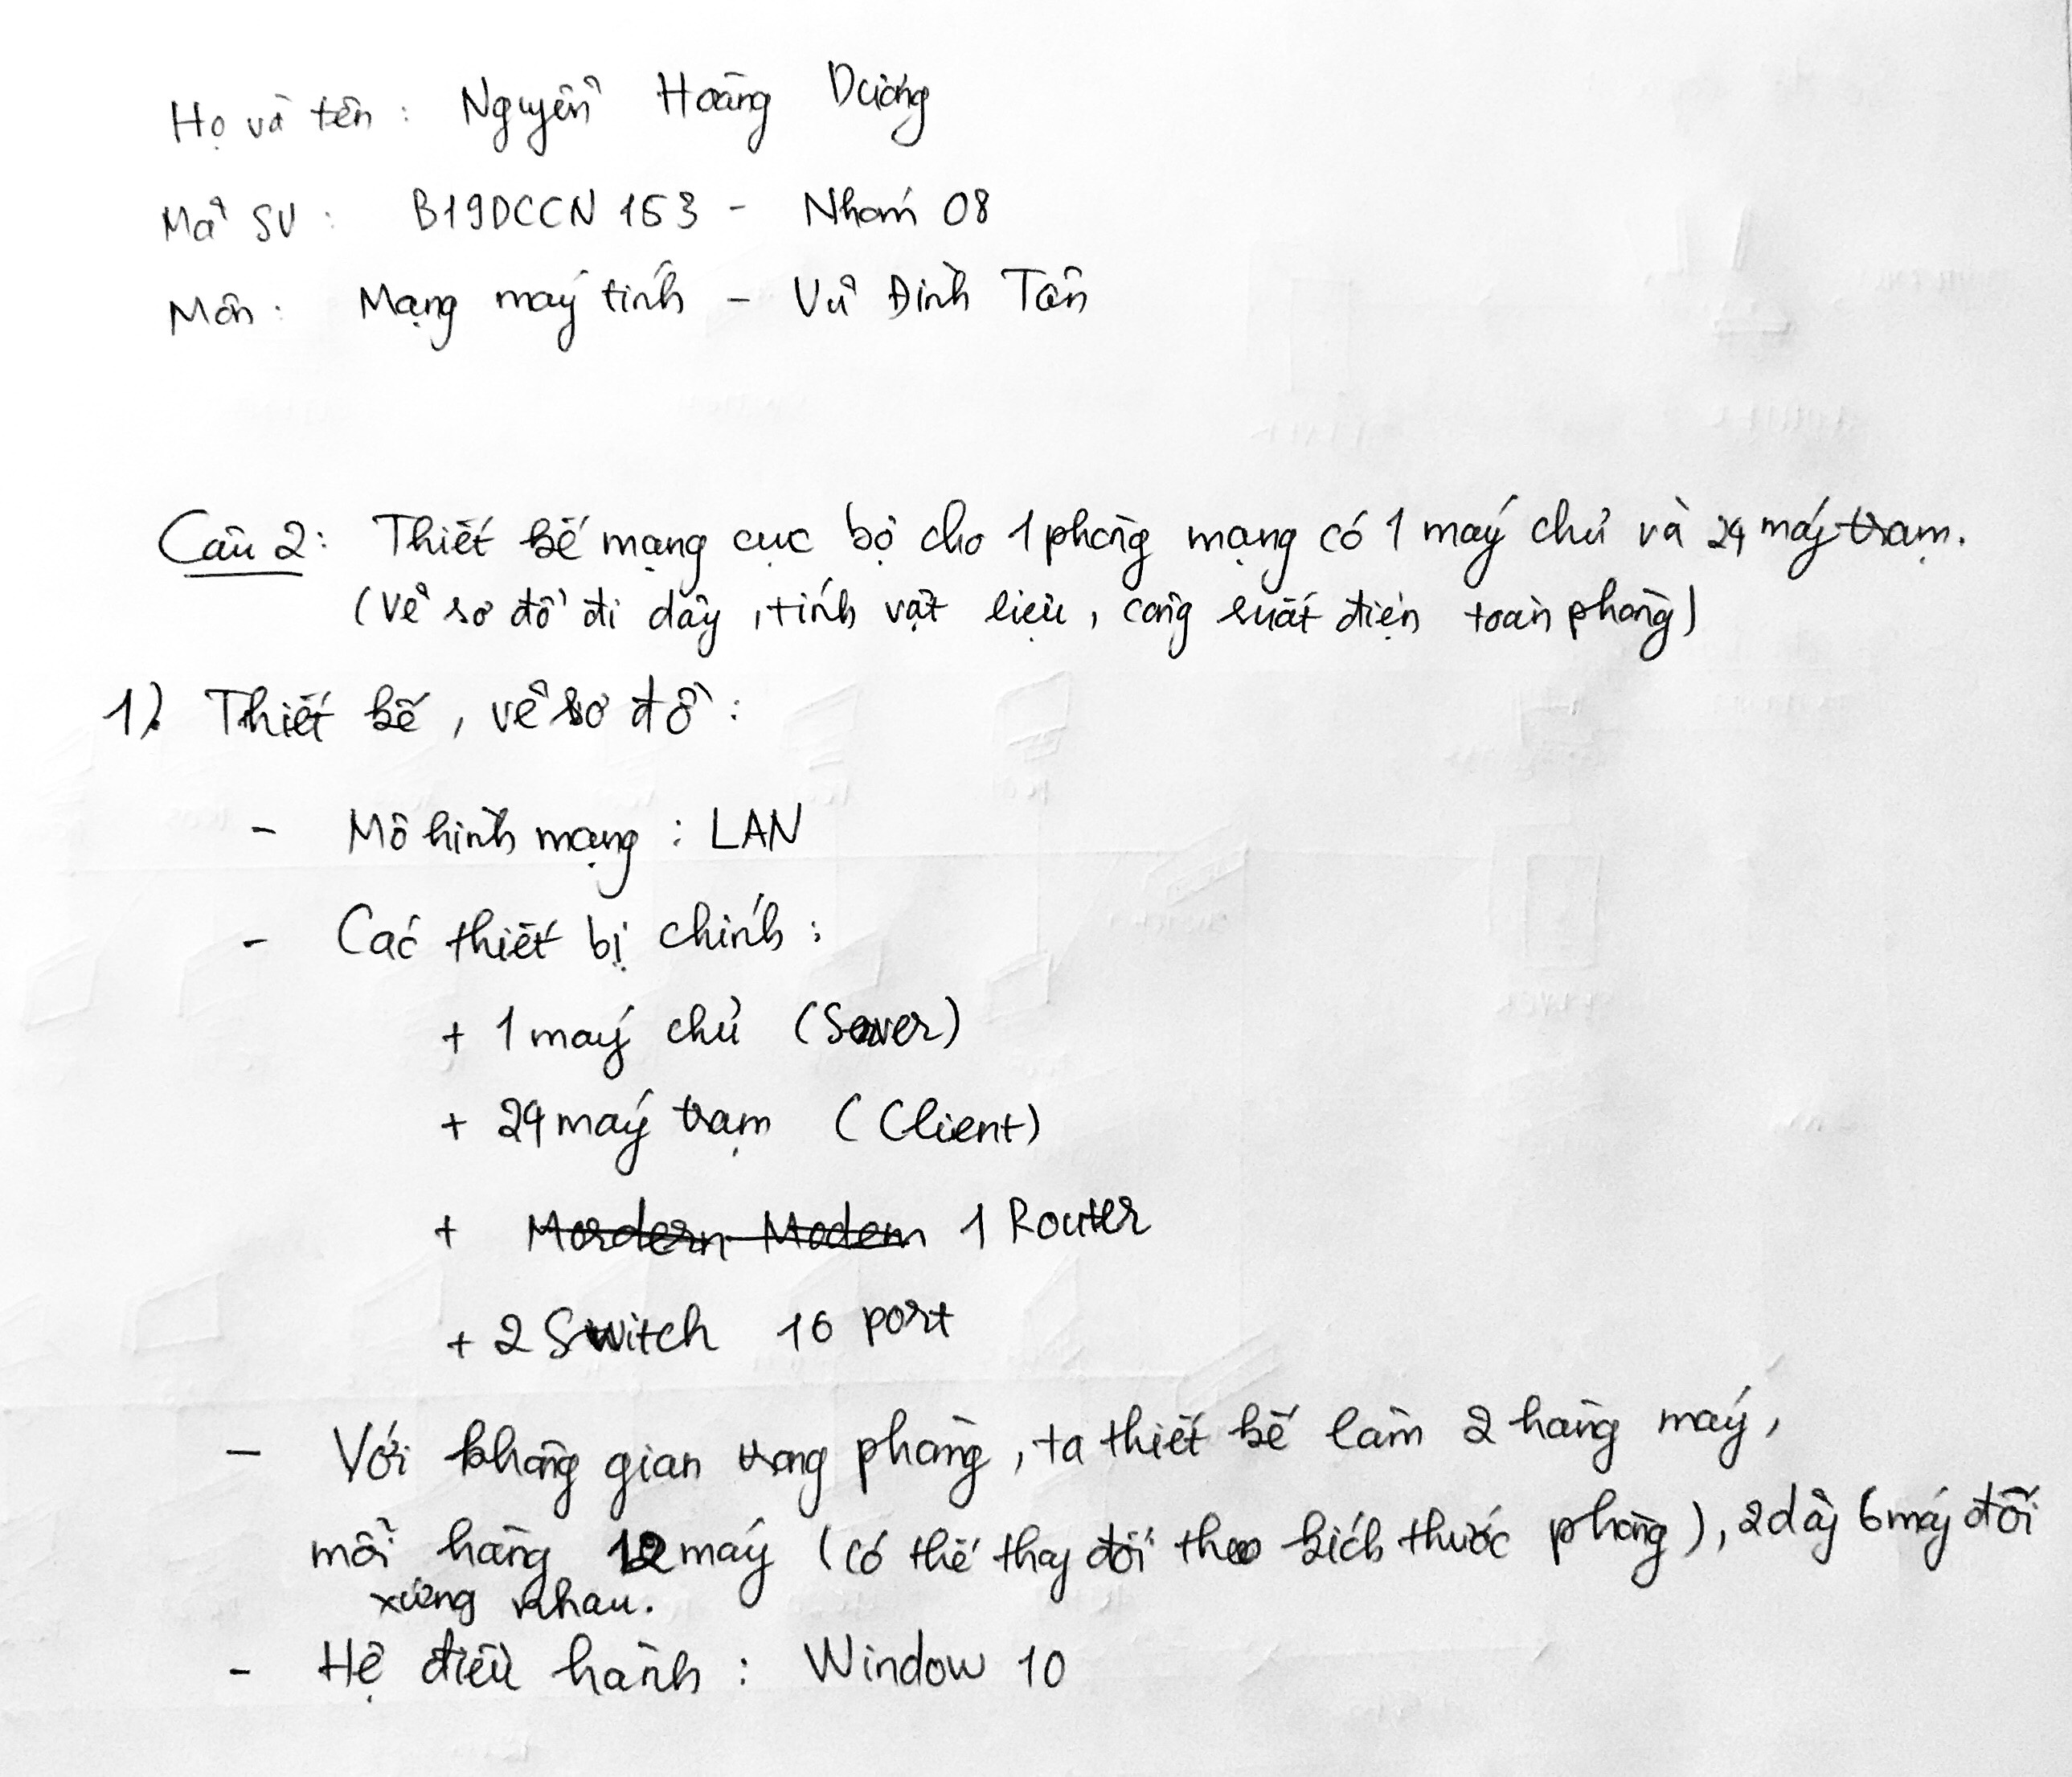 Họ và tên : Nguyễn Hoàng Dương
Mã SV : B19DCCN 153 - Nhóm 08
Môn : Mạng máy tính - Vũ Đình Tân
Câu 2 : Thiết kế mạng cục bộ cho 1 phòng mạng có 1 máy chủ và 24 máy trạm.
(Vẽ sơ đồ đi dây, tính vật liệu, công suất điện toàn phòng)
1). Thiết kế, vẽ sơ đồ :
- Mô hình mạng : LAN
- Các thiết bị chính :
+ 1 máy chủ (Sever)
+ 24 máy trạm (Client)
+ Mordern Modem 1 Router
+ 2 Switch 16 port
- Với không gian trong phòng, ta thiết kế làm 2 hàng máy,
mỗi hàng 12 máy (có thể thay đổi theo kích thước phòng), 2 dãy 6 máy đối
xứng nhau.
- Hệ điều hành : Window 10